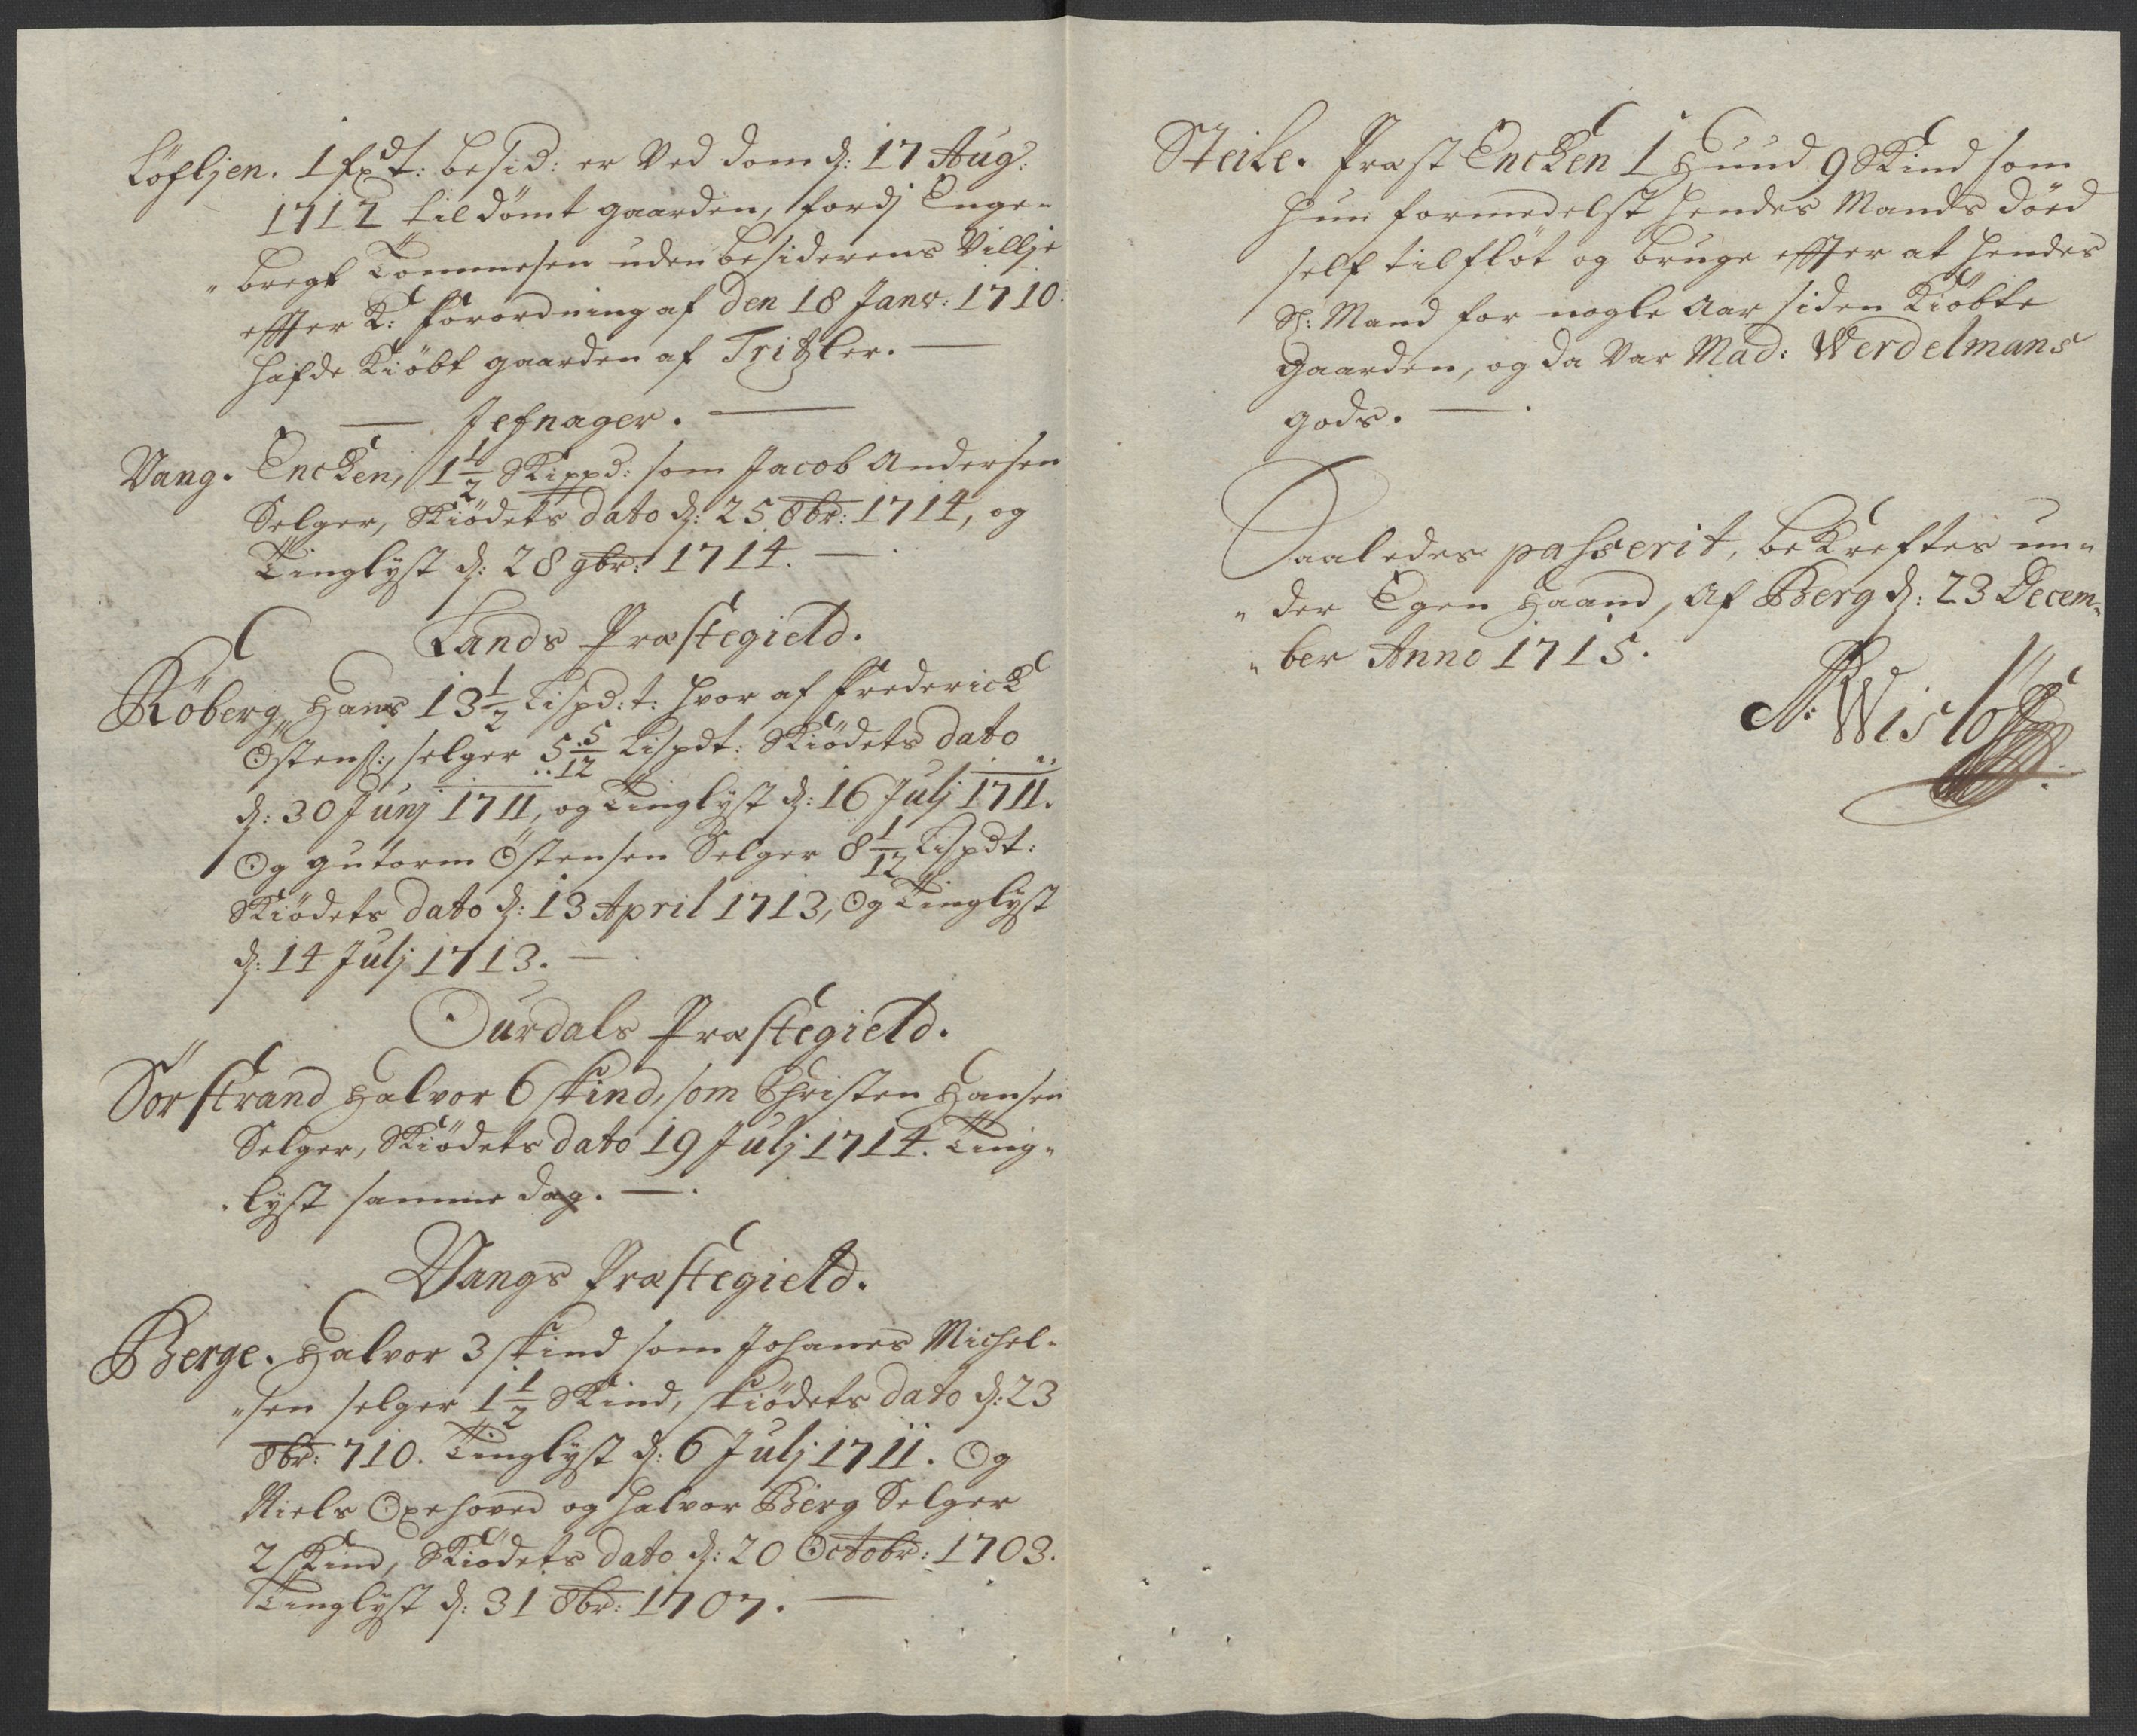 Löfljen. 1 fxdt: besid: er Ved dom d: 17 Aug:
1712 tildömt gaarden, fordj Enge-
bregt Tommesen uden besiderens Villje
effter K: forordning af den 18 Janv: 1710.
hafde Kiöbt gaarden af Tritzler. —
— Jefnager. —
Vang. Encken, 1 1/2 Skippd: som Jacob Andersen
Selger, Skiödets dato d: 25 8br: 1714, og
Tinglyst d: 28 9br: 1714. —
Lands Præstegield.
Röberg, Hans 13 1/2 Lispd:t: hvor af Frederick
Östens:, selger 5 5/12 Lispdt: Skiödets dato
d: 30 Junj 1711, og Tinglyst d: 16 Julj 1711.
Og gutorm Östensen Selger 8 1/12 Lispdt:
Skiödets dato d: 13 April 1713, Og Tinglyst
d: 14 Julj 1713. —
Ourdals Præstegield.
Sörstrand Halvor 6 skind, som Christen Hansen
Selger, Skiödets dato 19 Julj 1714. Ting-
lyst samme dag. —
Vangs Præstegield.
Berge. Halvor 3 skind som Johanes Michel-
sen selger 1 1/2 Skind, skiödets dato d: 23
8br: 710. Tinglyst d: 6 Julj 1711. Og
Niels Oxehoved og Halvor Berg Selger
2 skind, Skiödets dato d: 20 Octobr: 1703.
Tinglyst d: 31 8br: 1707. —
Steile. Præst Encken 1 Hund 9 Skind som
hun formedelst hendes Mands död
self tilflöt og bruge effter at hendes
Sl: Mand for nogle Aar siden Kiöbte
gaarden, og da Var Mad: Werdelmans
gods. —
Saaledes passerit, bekreftes un-
der Egen Haand, Af Berg d: 23 Decem-
ber Anno 1715.
N: Wislöff